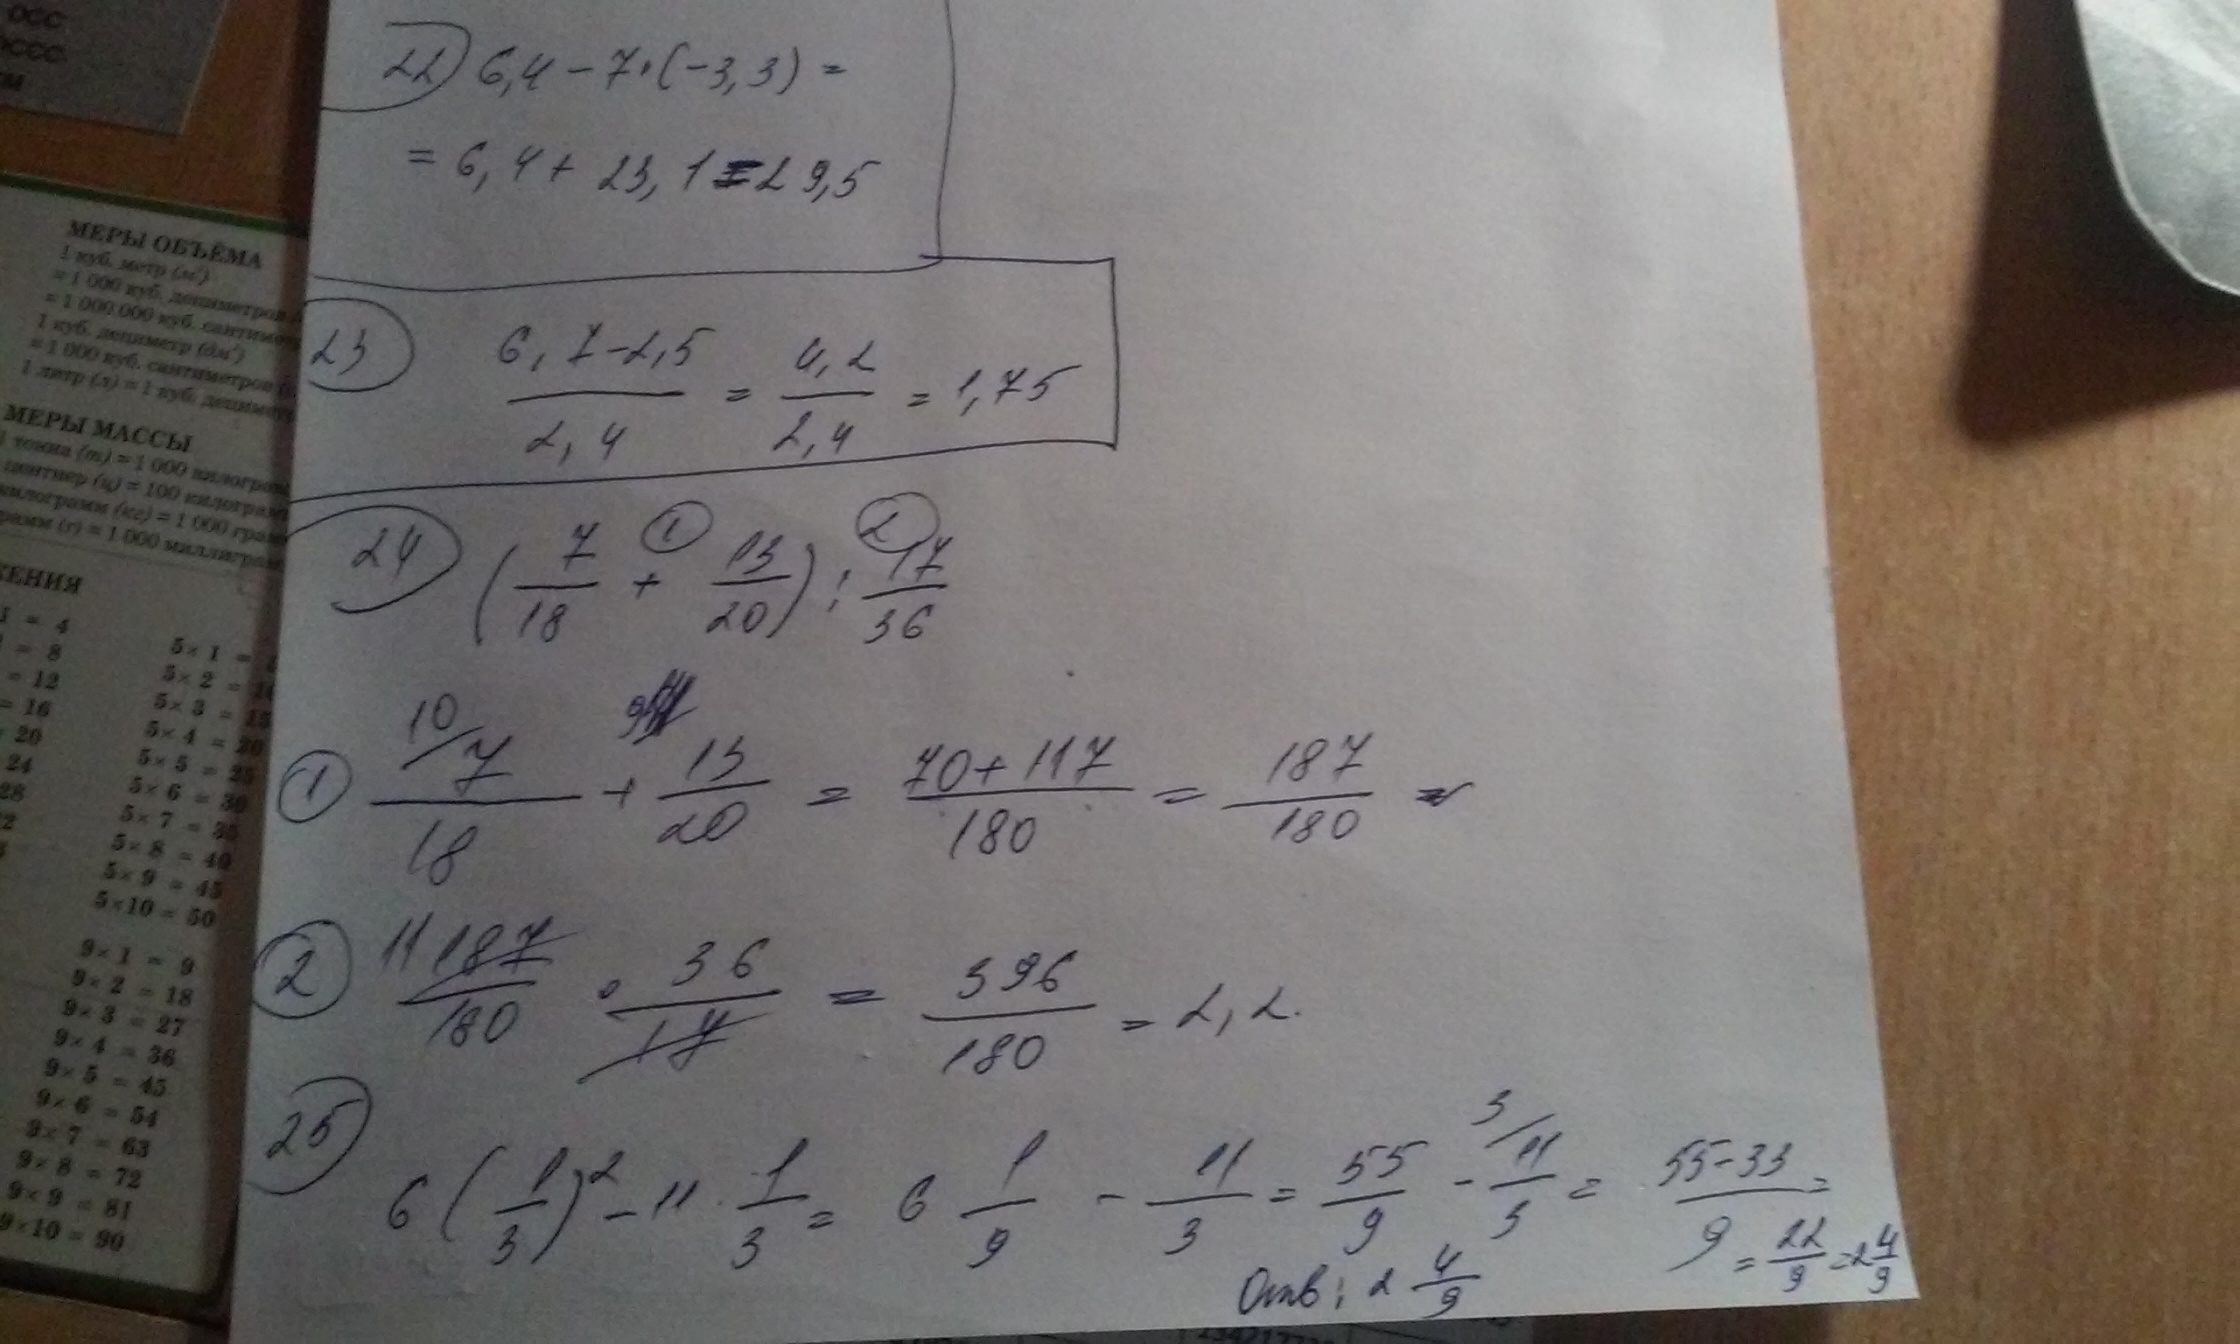 осс
МЕРЫ ОБЪЁМА
1 куб. метр (м³)
= 1 000 куб. дециметров
= 1 000 000 куб.
1 куб. дециметр (дм³)
= 1 000 куб. сантиметров
1 литр (л) = 1 куб. дециметр
МЕРЫ МАССЫ
тонна (т) = 1 000
центнер (ц) = 100
килограмм (кг) = 1 000
(г) = 1 000
= 4
= 8
= 12
= 16
20
24
28
5×1 =
5×2 =
5×3 = 15
5×4 = 20
5×5 = 25
5×6 = 30
5×7 = 35
5×8 = 40
5×9 = 45
5×10 = 50
9×1 = 9
9×2 = 18
9×3 = 27
9×4 = 36
9×5 = 45
9×6 = 54
9×7 = 63
9×8 = 72
9×9 = 81
9×10 = 90
22) 6,4 - 7·(-3,3) =
= 6,4 + 23,1 = 29,5
23 (6,7-2,5)/2,4 = 4,2/2,4 = 1,75
① ②
24 (7/18 + 13/20) : 17/36
10 9
① 7/18 + 13/20 = (70+117)/180 = 187/180
② 11 187/180 · 36/17 = 396/180 = 2,2.
25
3
6(1/3)² - 11·1/3 = 6 1/9 - 11/3 = 55/9 - 11/3 = (55-33)/9 =
= 22/9 = 2 4/9
Отв: 2 4/9